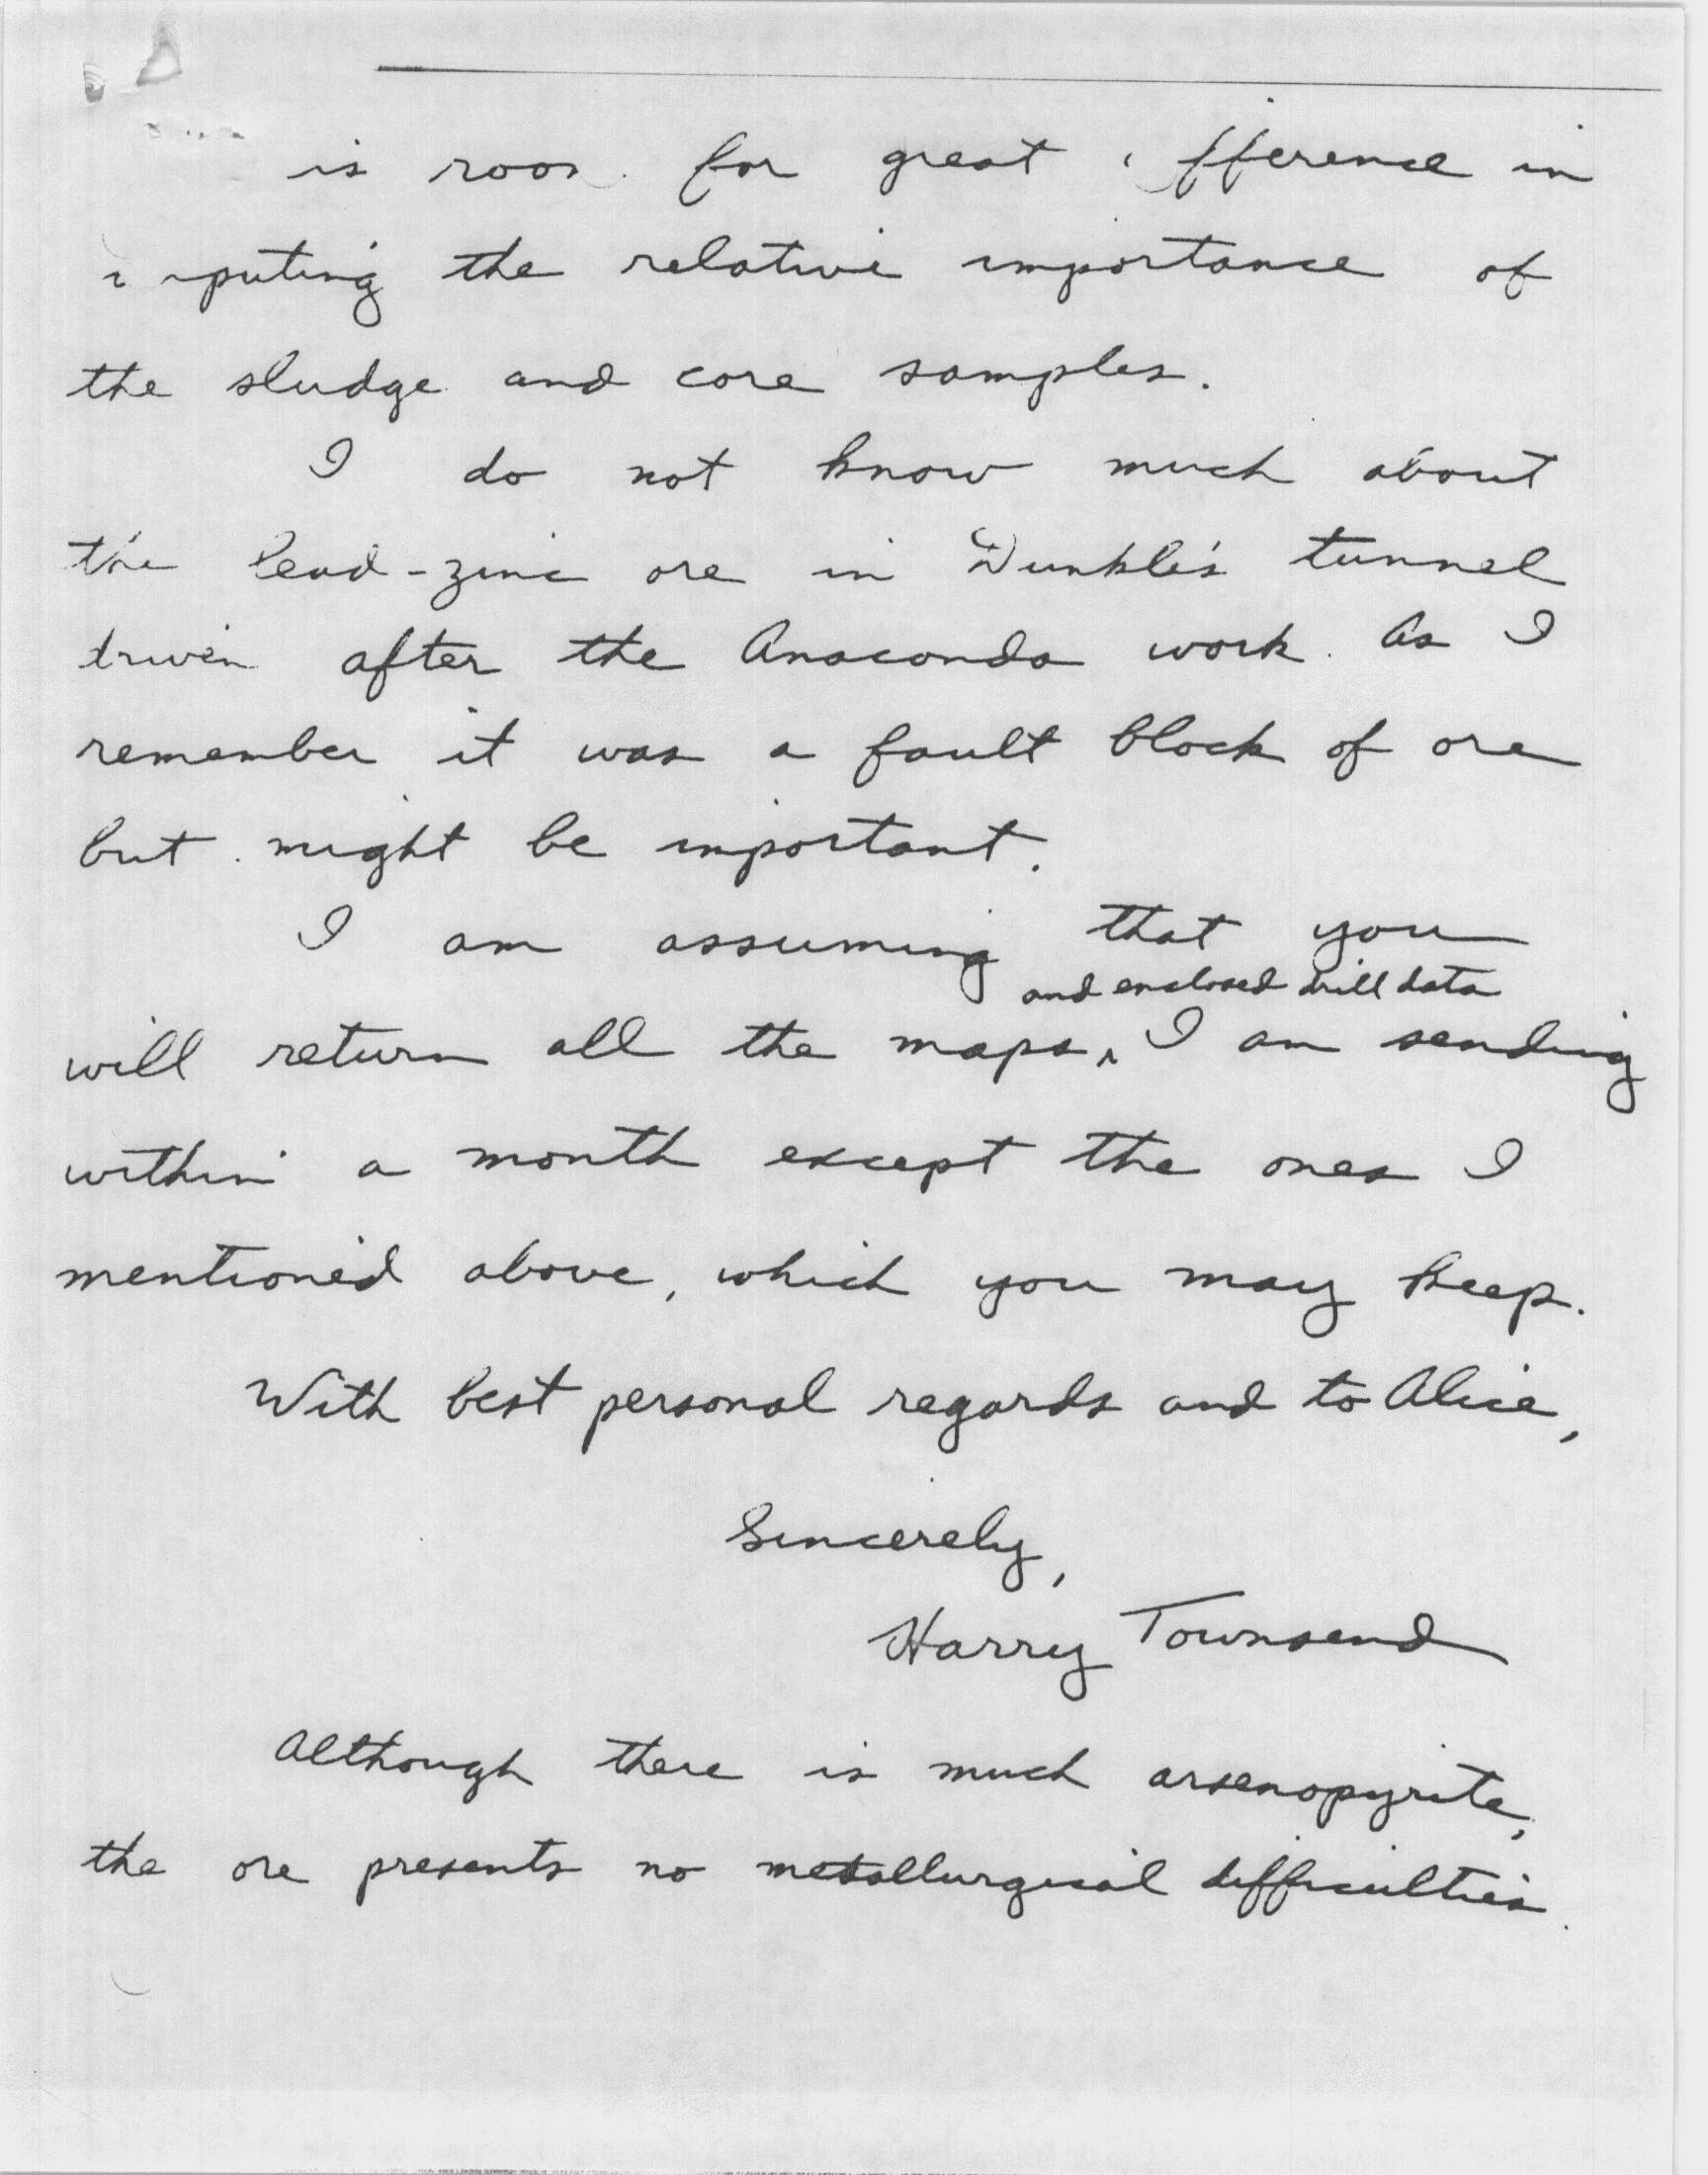 is room for great difference in
computing the relative importance of
the sludge and core samples.
I do not know much about
the lead-zinc ore in Dunkle's tunnel
driven after the Anaconda work. As I
remember it was a fault block of ore
but might be important.
I am assuming that you
and enclosed drill data
will return all the maps, I am sending
within a month except the ones I
mentioned above, which you may keep.
With best personal regards and to Alice,
Sincerely,
Harry Townsend
Although there is much arsenopyrite,
the ore presents no metallurgical difficulties.